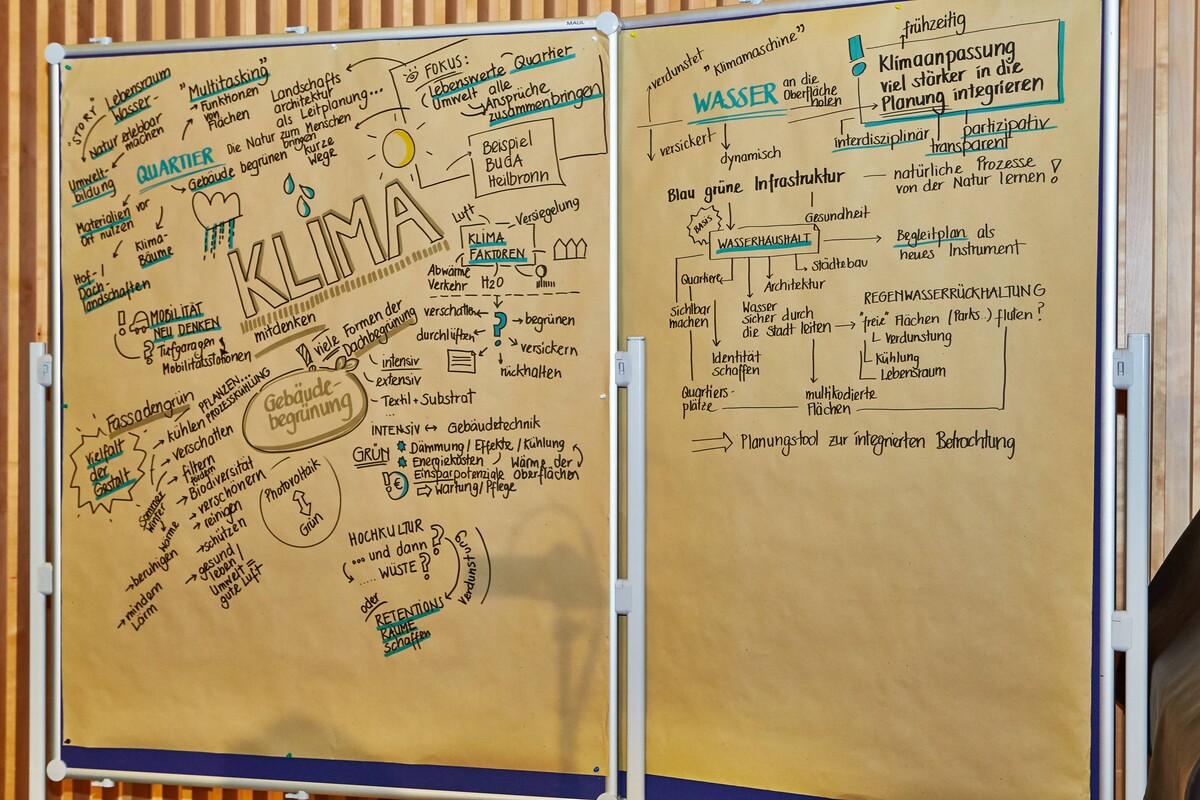 MAUL
"STORY"
Lebensraum
Wasser-
Natur erlebbar
machen
Umwelt-
bildung
Materialien vor
Ort nutzen
Klima-
Bäume
Hof- /
Dach-
landschaften
"Multitasking"
Funktionen
von
Flächen
QUARTIER
Gebäude begrünen
Die Natur zum Menschen
bringen
kurze
Wege
Landschafts
architektur
als Leitplanung...
FOKUS:
Lebenswerte Quartier
Umwelt alle
Ansprüche
zusammenbringen
Beispiel
BUGA
Heilbronn
KLIMA
mitdenken
Luft
Versiegelung
KLIMA
FAKTOREN
Abwärme
Verkehr
H2O
verschatten
durchlüften
?
begrünen
versickern
rückhalten
! MOBILITÄT
NEU DENKEN
? Tiefgaragen
Mobilitätsstationen
! viele Formen der
Dachbegrünung
Gebäude-
begrünung
intensiv
extensiv
Textil + Substrat
...
INTENSIV ↔ Gebäudetechnik
GRÜN
Dämmung / Effekte / Kühlung
Energiekosten, Wärme der
Einsparpotenziale Oberflächen
! €
Wartung/Pflege
Fassadengrün
Vielfalt
der
Gestalt
PFLANZEN...
PROZESSKÜHLUNG
kühlen
verschatten
filtern
Biodiversität
verschönern
reinigen
schützen
gesund
leben /
Umwelt =
gute Luft
Sommer
Winter
Wärme
beruhigen
mindern
Lärm
Photovoltaik
Grün
HOCHKULTUR
... und dann ?
..... WÜSTE ?
Verdunstung
oder
RETENTIONS
RÄUME
schaffen
verdunstet
"Klimamaschine"
WASSER
an die
Oberfläche
holen
versickert
dynamisch
frühzeitig
! Klimaanpassung
viel stärker in die
Planung integrieren
interdisziplinär
transparent
partizipativ
Blau grüne Infrastruktur
natürliche Prozesse
von der Natur lernen !
BASIS
WASSERHAUSHALT
Gesundheit
Städtebau
Architektur
Quartiere
Begleitplan als
neues Instrument
sichtbar
machen
Wasser
sicher durch
die Stadt leiten
REGENWASSERRÜCKHALTUNG
"freie" Flächen (Parks...) fluten ?
Verdunstung
Kühlung
Lebensraum
Identität
schaffen
Quartiers-
plätze
multikodierte
Flächen
Planungstool zur integrierten Betrachtung